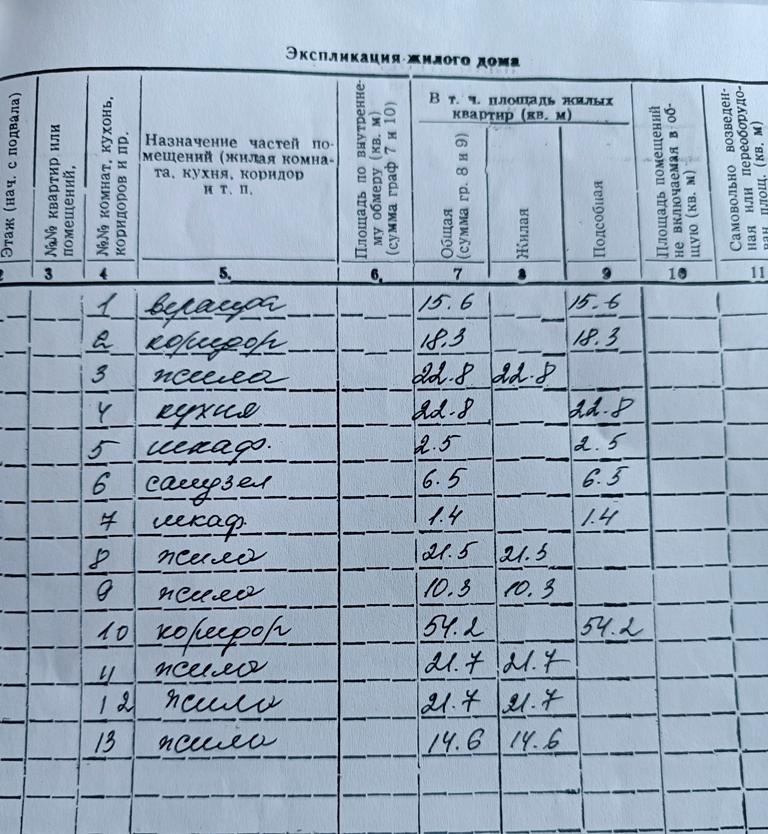 Экспликация жилого дома
Этаж (нач. с подвала)
№№ квартир или помещений,
№№ комнат, кухонь, коридоров и др.
Назначение частей по-
мещений (жилая комна-
та, кухня, коридор
и т. п.
Площадь по внутренне-
му обмеру (кв. м)
(сумма граф 7 и 10)
В т. ч. площадь жилых
квартир (кв. м)
Общая
(сумма гр. 8 и 9)
Жилая
Подсобная
Площадь помещений
не включаемая в об-
щую (кв. м)
Самовольно возведен-
ная или переоборудо-
ван площ. (кв. м)
2 3 4 5. 6. 7 8 9 10 11
1 веранда 15.6 15.6
2 коридор 18.3 18.3
3 жило 22.8 22.8
4 кухня 22.8 22.8
5 шкаф. 2.5 2.5
6 санузел 6.5 6.5
7 шкаф. 1.4 1.4
8 жило 21.5 21.5
9 жило 10.3 10.3
10 коридор 54.2 54.2
11 жило 21.7 21.7
12 жило 21.7 21.7
13 жило 14.6 14.6